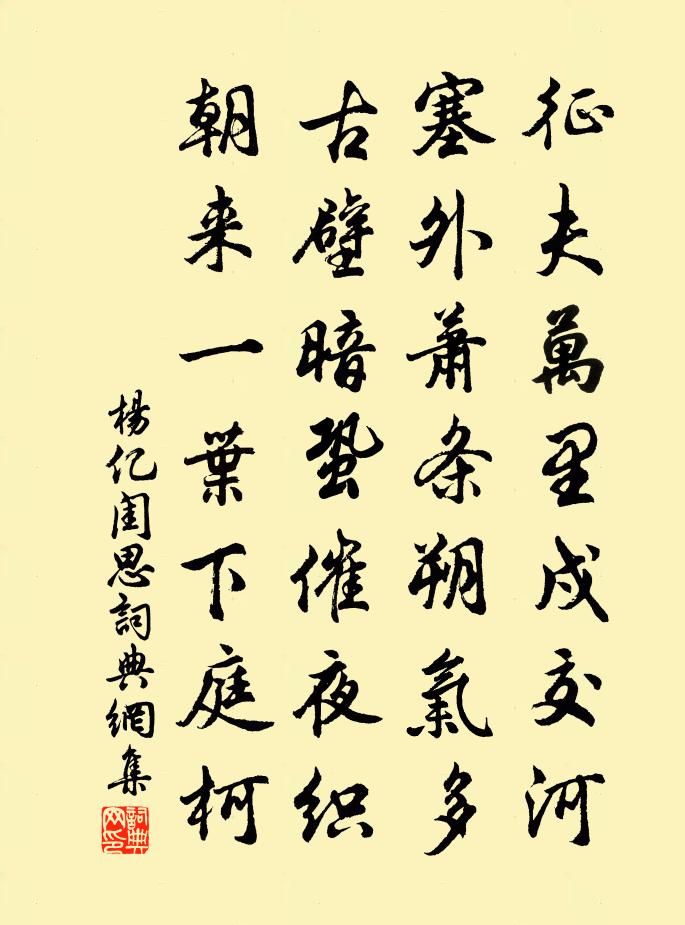 征夫萬里戍交河
塞外萧条朔氣多
古壁暗蛩催夜织
朝来一葉下庭柯
楊亿闺思詞典網集
詞典网印